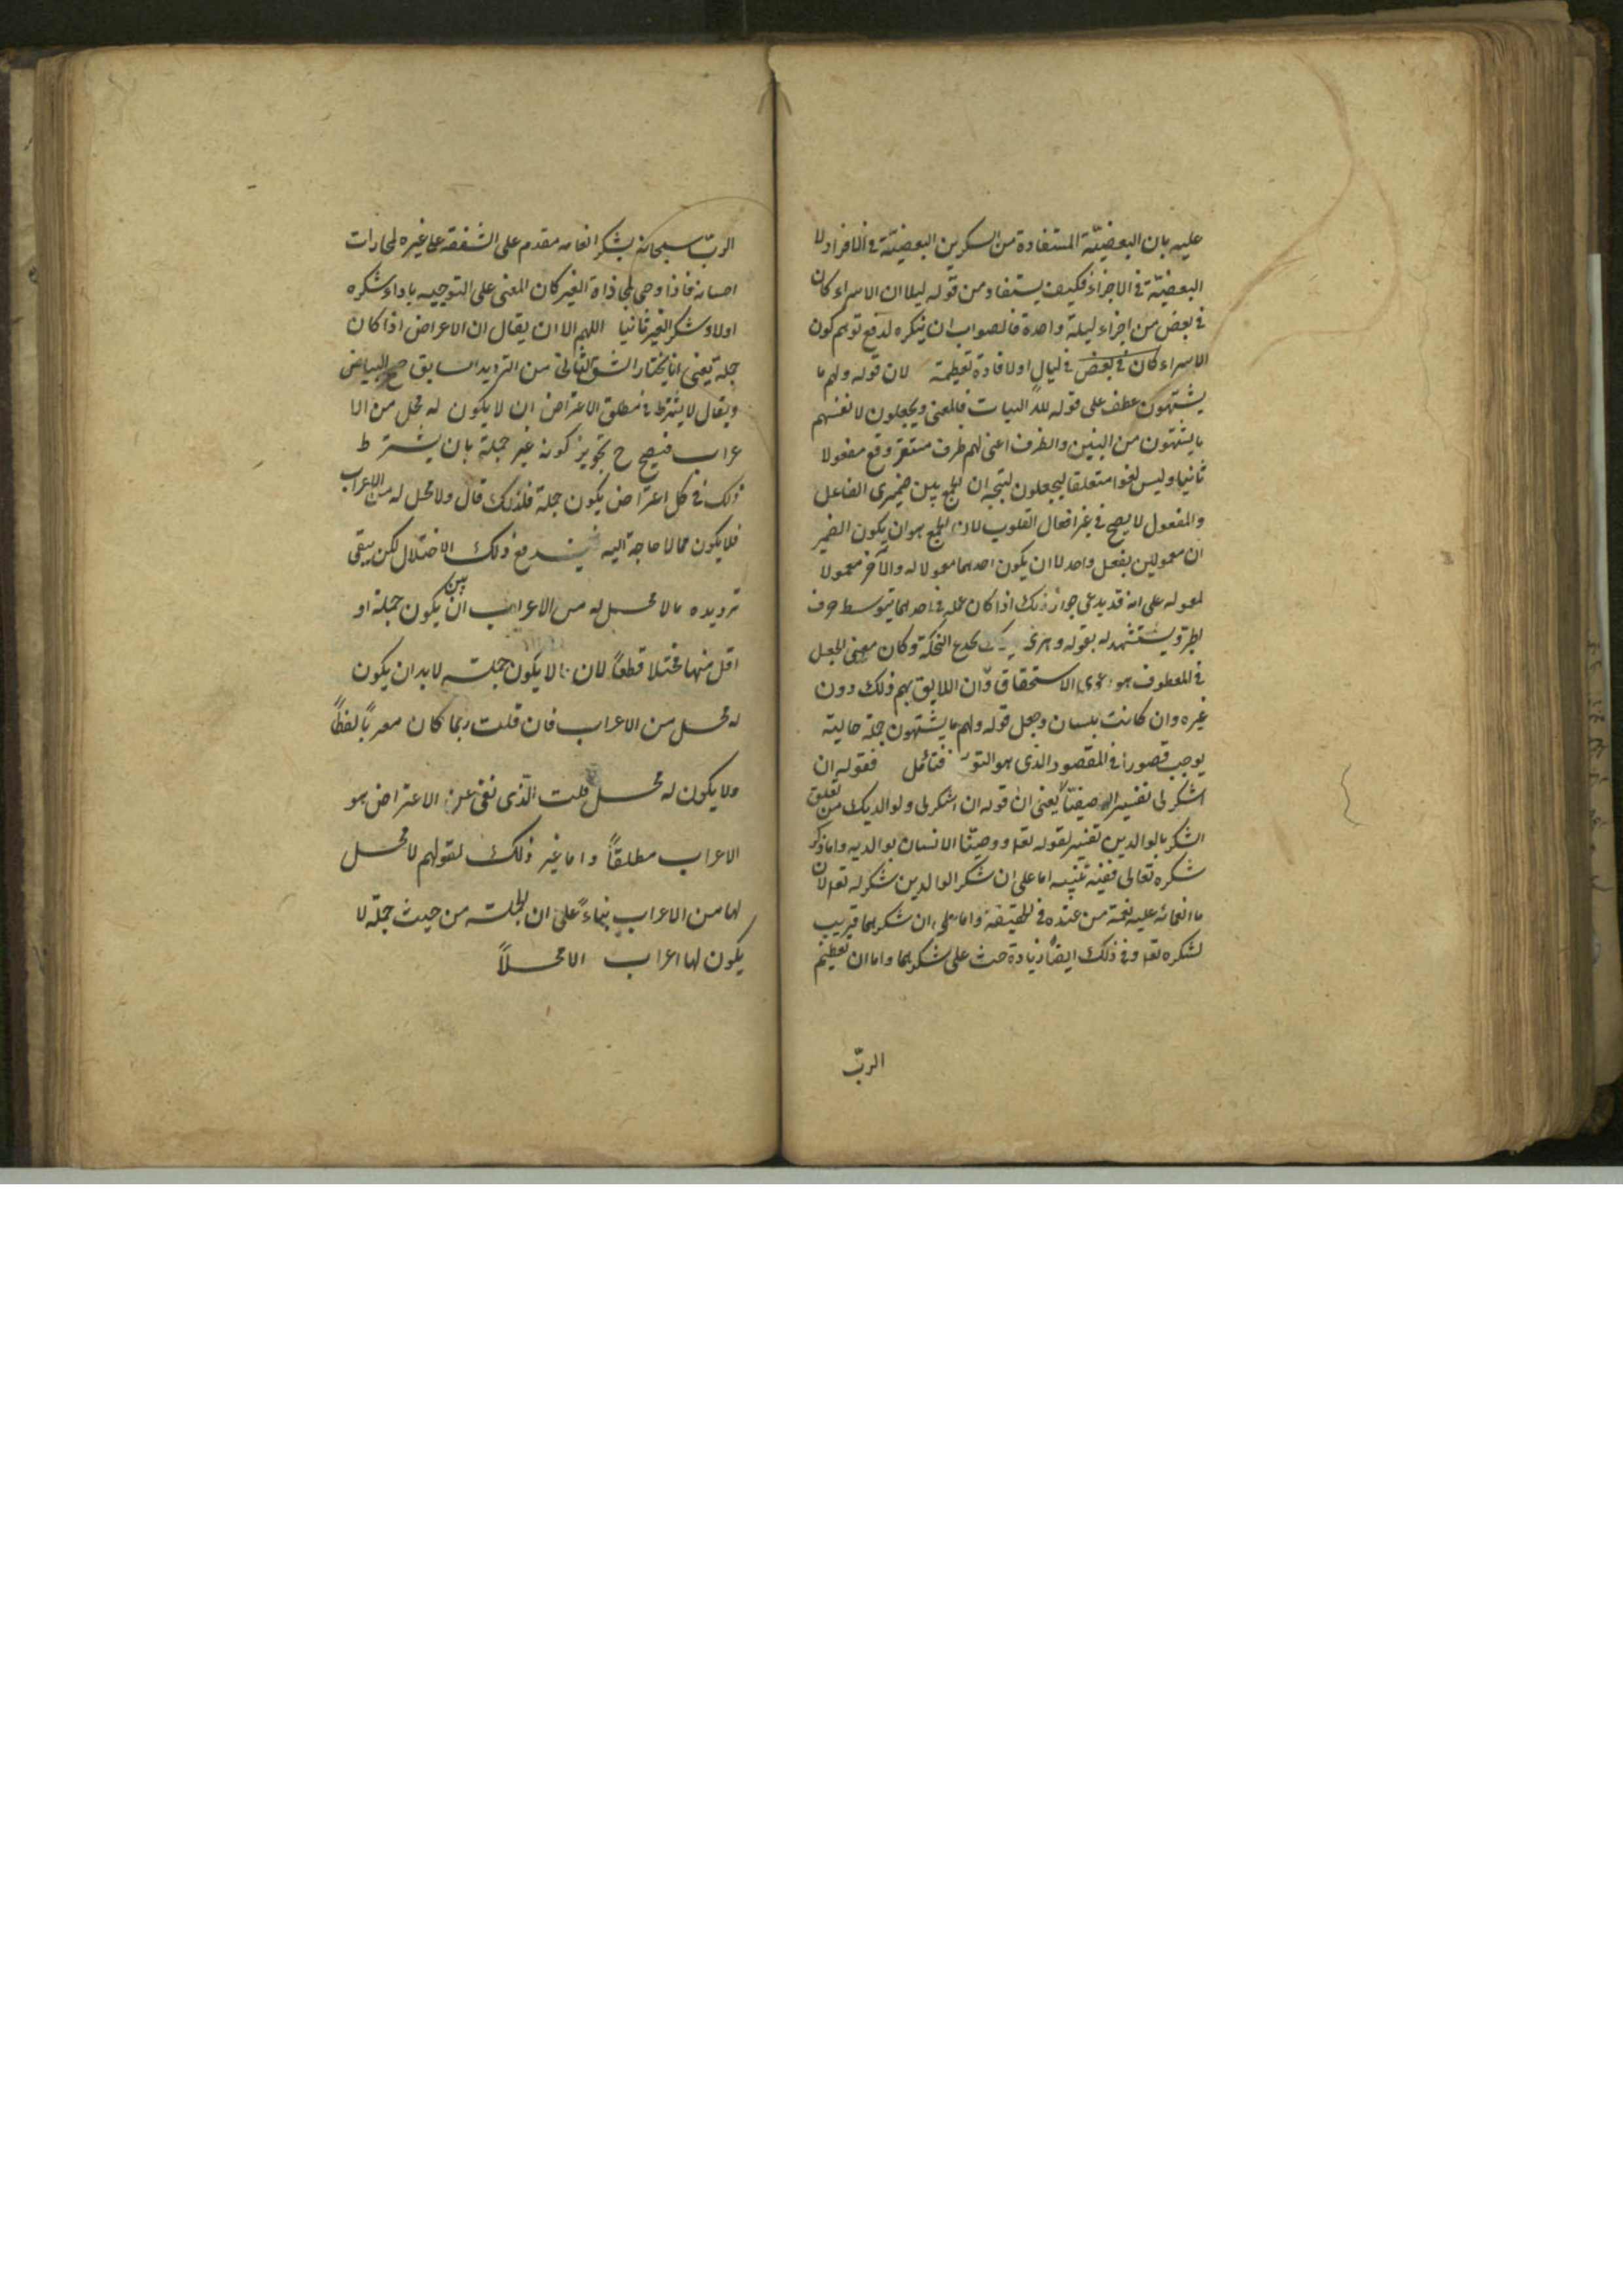 عليه بان البعضيّة المستفادة من التنكير البعضيّة في الافراد لا
البعضيّة في الاجزاء فكيف يستفاد من قوله ليلا ان الاسراء كان
في بعض من اجزاء ليلة واحدة فالصواب ان تنكيره لدفع توهم كون
الاسراء كان في بعض في ليال او لافادة تعظيمه لان قوله ولهم ما
يشتهون عطف على قوله لله البنات فالمعنى ويجعلون لانفسهم
ما يشتهون من البنين والظرف اعنى لهم ظرف مستقر وقع مفعولا
ثانيا وليس لغوا متعلقا ليجعلون ليتجه ان الجمع بين ضميرى الفاعل
والمفعول لا يصح في غير افعال القلوب لان الجمع هو ان يكون الضمير
ان معمولين بفعل واحد لا ان يكون احدهما معمولا له والآخر معمولا
لمعموله على انه قد يدعى جواز ذلك اذا كان عمله في احدهما بتوسط حرف
الجر ويستشهد له بقوله وهزى اليك بجذع النخلة وكان معنى الجعل
في المعطوف هو دعوى الاستحقاق وان اللايق بهم ذلك دون
غيره وان كانت بلسان وجعل قوله ولهم ما يشتهون جملة حالية
يوجب قصورا في المقصود الذى هو فتأمل فقوله ان
اشكر لى تفسير لوصيّنا يعنى ان قوله ان اشكر لى ولوالديك من تعلق
الشكر بالوالدين تفسير لقوله تعا ووصيّنا الانسان بوالديه واما ذكر
شكره تعالى ففيه تنبيه اما على ان شكر الوالدين شكر له تعا لان
ما انعما به عليه نعمة من عنده في الحقيقة واما على ان شكرهما قريب
لشكره تعا وفي ذلك ايضاً زيادة حث على شكرهما واما ان تعظيم
الربّ
الربّ سبحانه بشكر انعامه مقدم على الشفقة على غيره لمجازات
احسانه فاذا وصى لمجازاة الغير كان المعنى على التوجيه باداء شكره
اولا وشكر الغير ثانيا اللهم الا ان يقال ان الاعراض اذا كان
جملة يعنى انا نختار الشق الثانى من الترديد السابق
ويقال لا يشترط في مطلق الاعتراض ان لا يكون له محل من الا
عراب فيصح ح تجويز كونه غير جملة بان يشترط
ذلك في كل اعتراض يكون جملة فلذلك قال ولا محل له من الاعراب
فلا يكون مما لا حاجة اليه فيندفع ذلك الاختلال لكن يبقى
ترديده ما لا محل له من الاعراب بين ان يكون جملة او
اقل منها مختلا قطعاً لان ما لا يكون جملة لا بد ان يكون
له محل من الاعراب فان قلت ربما كان معرباً لفظاً
ولا يكون له محل قلت الّذى نفى عن الاعتراض هو
الاعراب مطلقاً واما غير ذلك لقولهم لا محل
لها من الاعراب بناءً على ان الجملة من حيث جملة لا
يكون لها اعراب الا محلاً